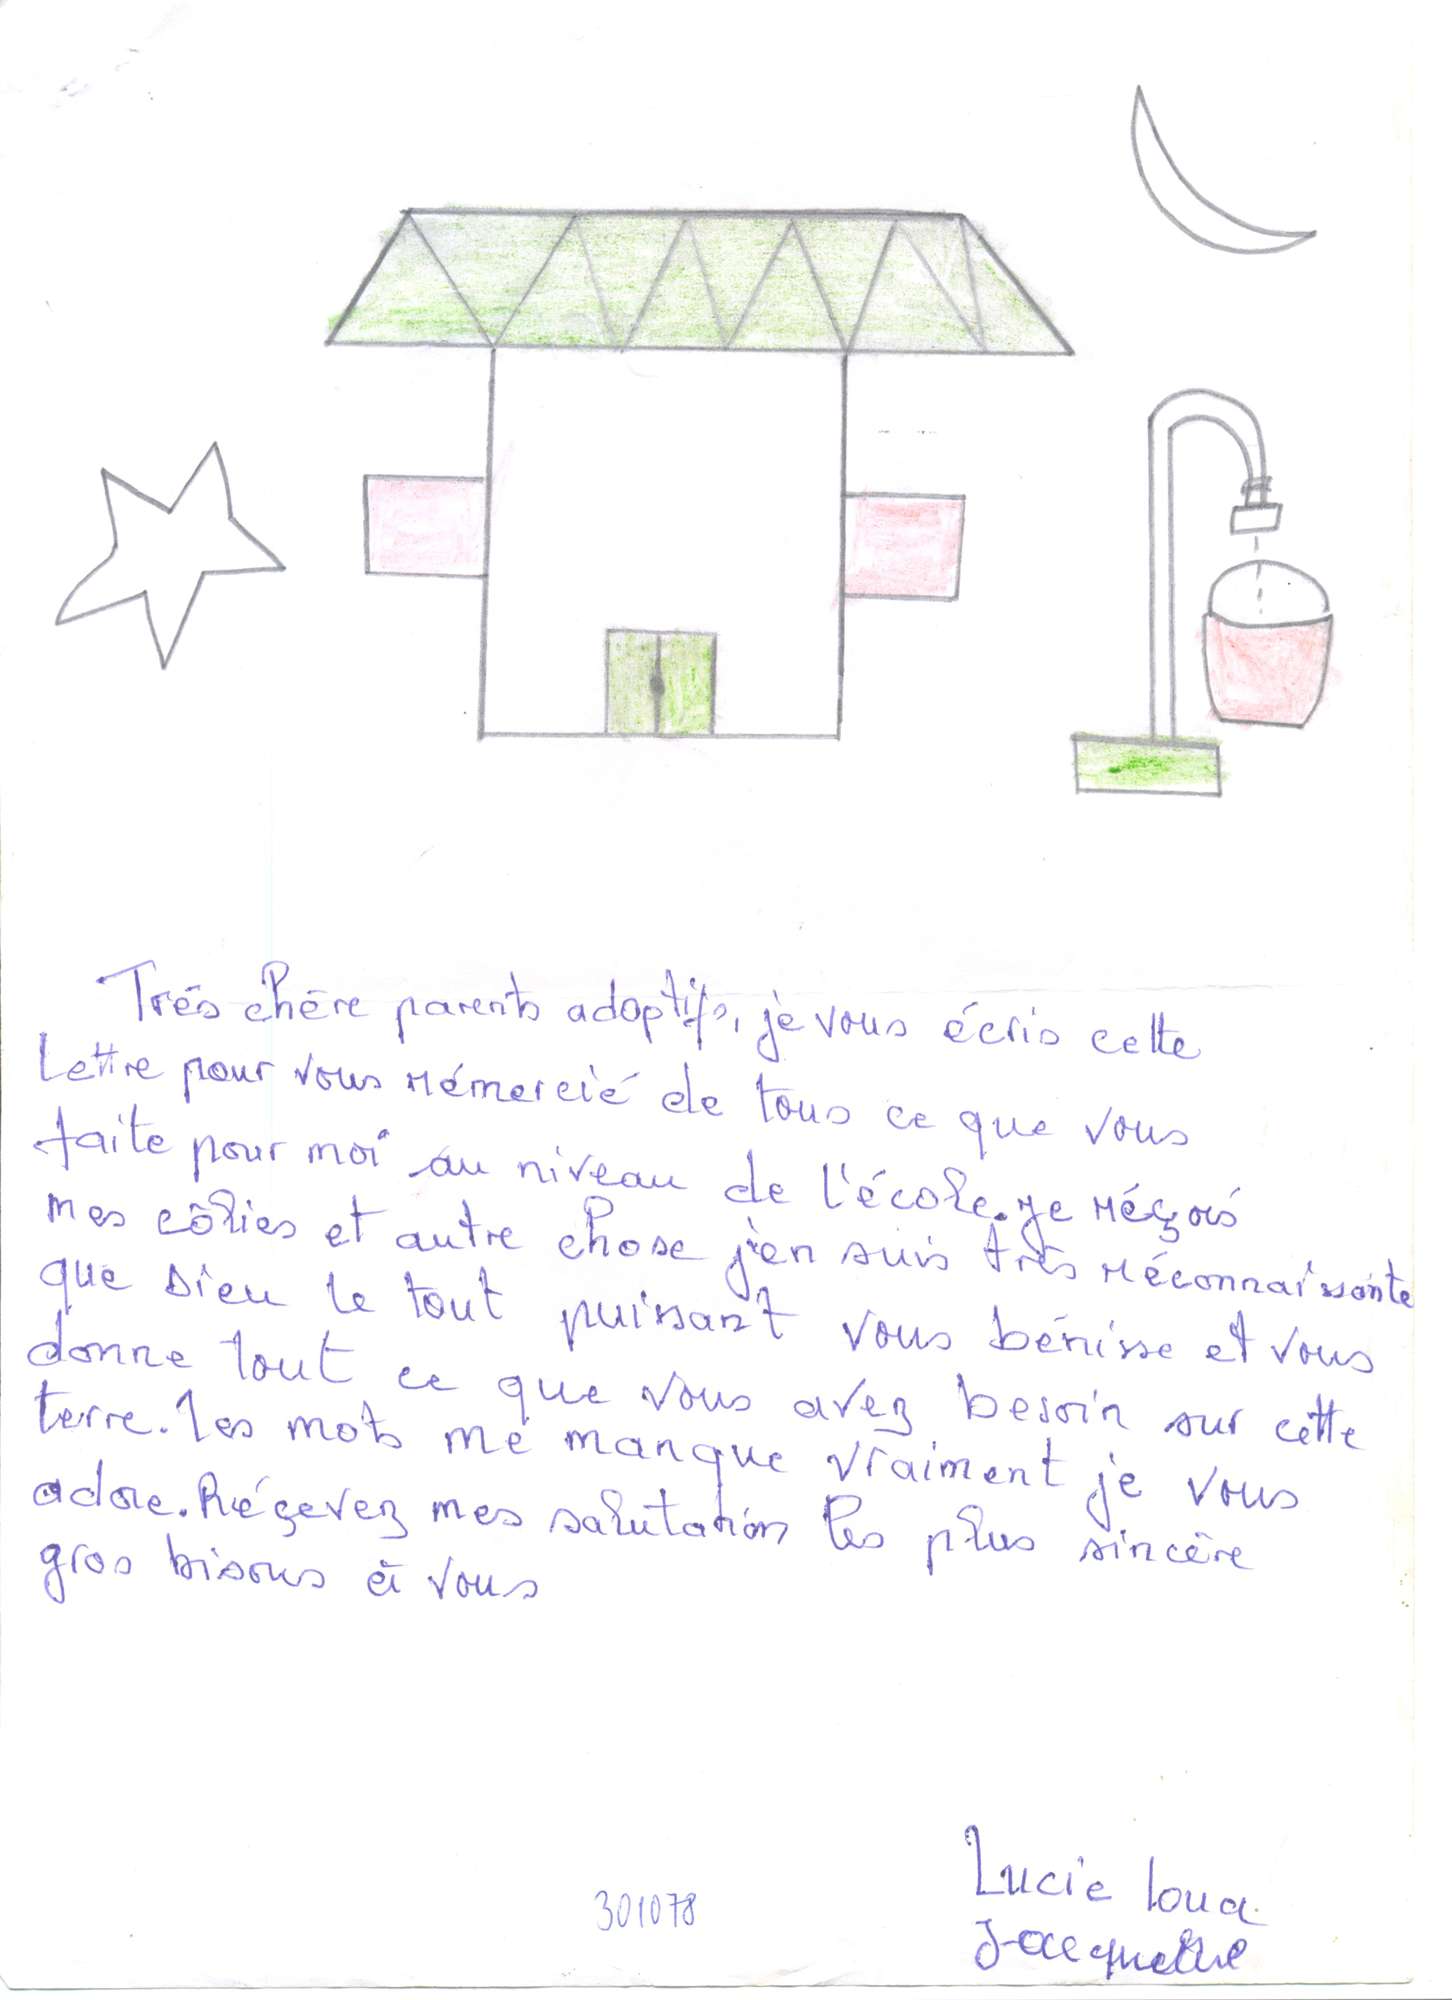 Très chère parents adoptifs, je vous écris cette
Lettre pour vous rémercié de tous ce que vous
faite pour moi au niveau de l'école. je réçois
mes côlies et autre chose j'en suis très réconnaissante
que Dieu le tout puissant vous bénisse et vous
donne tout ce que vous avez besoin sur cette
terre. les mots me manque vraiment je vous
adore. Réçevez mes salutation les plus sincère
gros bisous à vous
Lucie loua
301078
Jacqueline